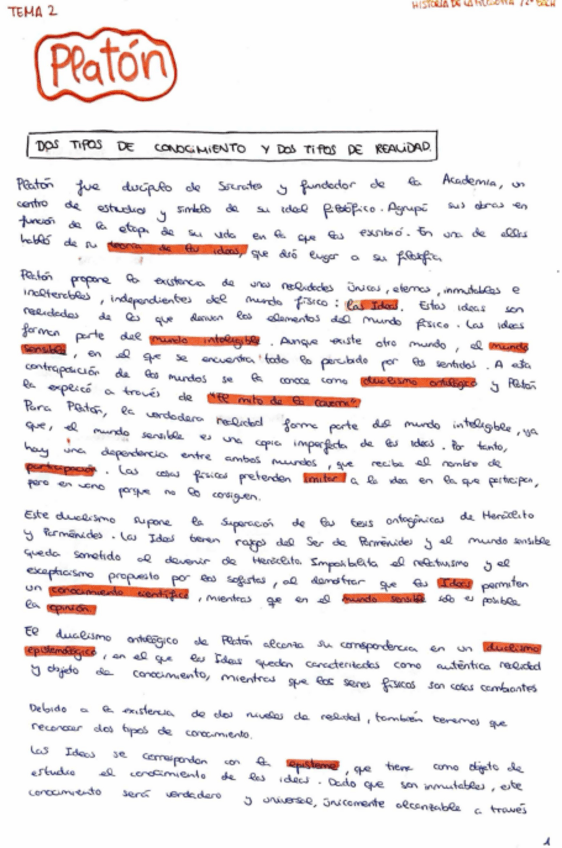 TEMA 2
HISTORIA DE LA FILOSOFÍA / 2º BACH
Platón
DOS TIPOS DE CONOCIMIENTO Y DOS TIPOS DE REALIDAD.
Platón fue discípulo de Sócrates y fundador de la Academia, un
centro de estudios y símbolo de su ideal filosófico. Agrupó sus obras en
función de la etapa de su vida en la que las escribió. En una de ellas
habló de su teoría de las ideas, que dió lugar a su filosofía.
Platón propone la existencia de unas realidades únicas, eternas, inmutables e
inalterables, independientes del mundo físico: las Ideas. Estas ideas son
realidades de las que derivan los elementos del mundo físico. Las ideas
forman parte del mundo inteligible. Aunque existe otro mundo, el mundo
sensible, en el que se encuentra todo lo percibido por los sentidos. A esta
contraposición de los mundos se la conoce como dualismo ontológico y Platón
la explicó a través de "El mito de la caverna".
Para Platón, la verdadera realidad forma parte del mundo inteligible, ya
que, el mundo sensible es una copia imperfecta de las ideas. Por tanto,
hay una dependencia entre ambos mundos, que recibe el nombre de
participación. Las cosas físicas pretenden imitar a la idea en la que participan,
pero en vano porque no lo consiguen.
Este dualismo supone la superación de las tesis ontogónicas de Heráclito
y Parménides. Las Ideas tienen rasgos del Ser de Parménides y el mundo sensible
queda sometido al devenir de Heráclito. Imposibilita el relativismo y el
excepticismo propuesto por los sofistas, al demostrar que las Ideas permiten
un conocimiento científico, mientras que en el mundo sensible sólo es posible
la opinión.
El dualismo ontológico de Platón alcanza su correspondencia en un dualismo
epistemológico, en el que las Ideas quedan caracterizadas como auténtica realidad
y objeto de conocimiento, mientras que los seres físicos son cosas cambiantes
Debido a la existencia de dos niveles de realidad, también tenemos que
reconocer dos tipos de conocimiento.
Las Ideas se corresponden con la episteme, que tiene como objeto de
estudio el conocimiento de las ideas. Dado que son inmutables, este
conocimiento será verdadero y universal, únicamente alcanzable a través
1